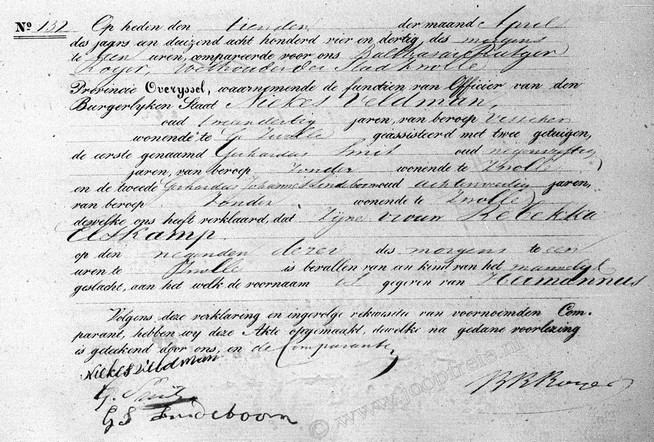 No 132 Op heden den tienden der maand April
des jaars een duizend acht honderd vier en dertig, des morgens
te tien uren, compareerde voor ons Balthasar Rutger
Royer, Wethouder der Stad Zwolle
Provincie Overyssel, waarnemende de functiën van Officier van den
Burgerlyken Staat Niekes Veldman,
oud jaren, van beroep Visscher
wonende te Zwolle geassisteerd met twee getuigen,
de eerste genaamd Gerhardus Smit oud
jaren, van beroep Zonder wonende te Zwolle
en de tweede Gerhardus Johannes Lindeboom oud achtenveertig jaren,
van beroep Zonder wonende te Zwolle
dewelke ons heeft verklaard, dat Zijne vrouw Rebekka
Elskamp
op den negenden dezer des morgens te een
uren te Zwolle is bevallen van een kind van het mannelijk
geslacht, aan het welk de voornaam is gegeven van Hermannus
Volgens deze verklaring en ingevolge rekwisitie van voornoemden Com-
parant, hebben wy deze Akte opgemaakt, dewelke na gedane voorlezing
is geteekend door ons, en de Comparante
Niekes Veldman
G. Smit
GJ Lindeboom
BR Royer
© www.jooptreie.nl